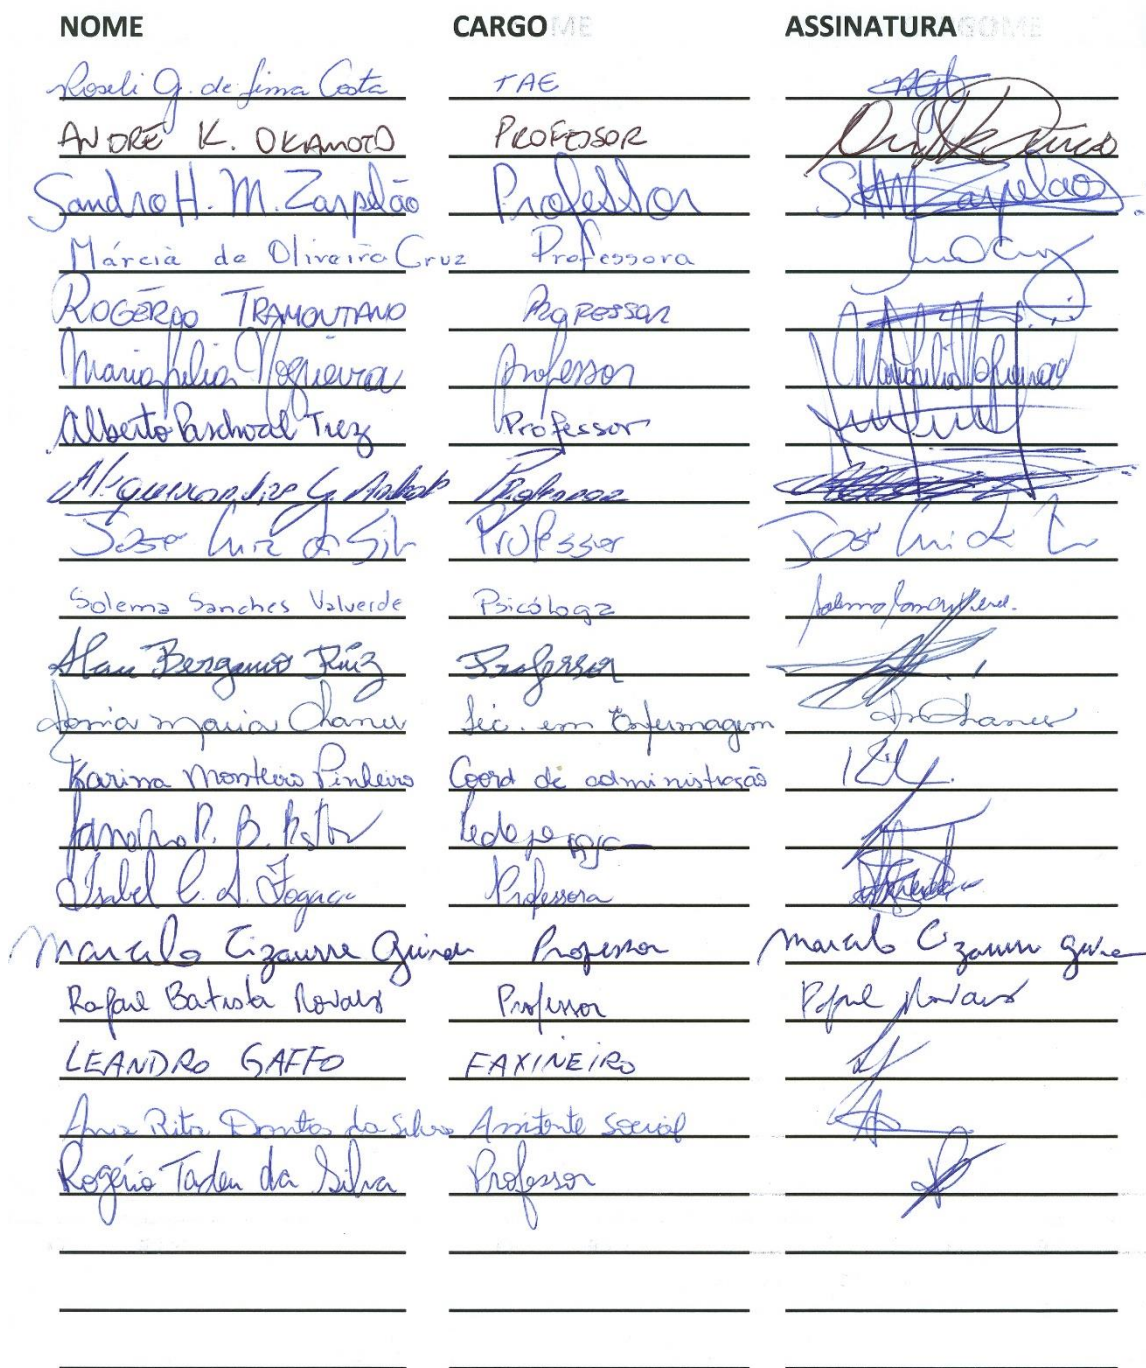 NOME CARGO ASSINATURA
Roseli G. de Lima Costa TAE
ANDRÉ K. OKAMOTO PROFESSOR
Sandro H. M. Zarpelão Professor SHM Zarpelão
Márcia de Oliveira Cruz Professora
ROGÉRIO TRAMONTANO PROFESSOR
Maria Júlia Nogueira Professor
Alberto Paschoal Trez Professor
Professor
José Luiz da Silv Professor José Luiz
Solema Sanches Valverde Psicóloga
Alan Bergamo Ruiz Professor
Sonia Maria Chaner Téc. em Enfermagem
Karina Monteiro Pinheiro Coord de administração
R. B. Pedagoga
Isabel C. A. Fogaça Professora
Marcelo Cizaurre Guirau Professor Marcelo Cizaurre Guirau
Rafael Batista Novaes Professor Rafael Novaes
LEANDRO GAFFO FAXINEIRO
Ana Rita Dantas da Silva Assistente Social
Rogério Tadeu da Silva Professor